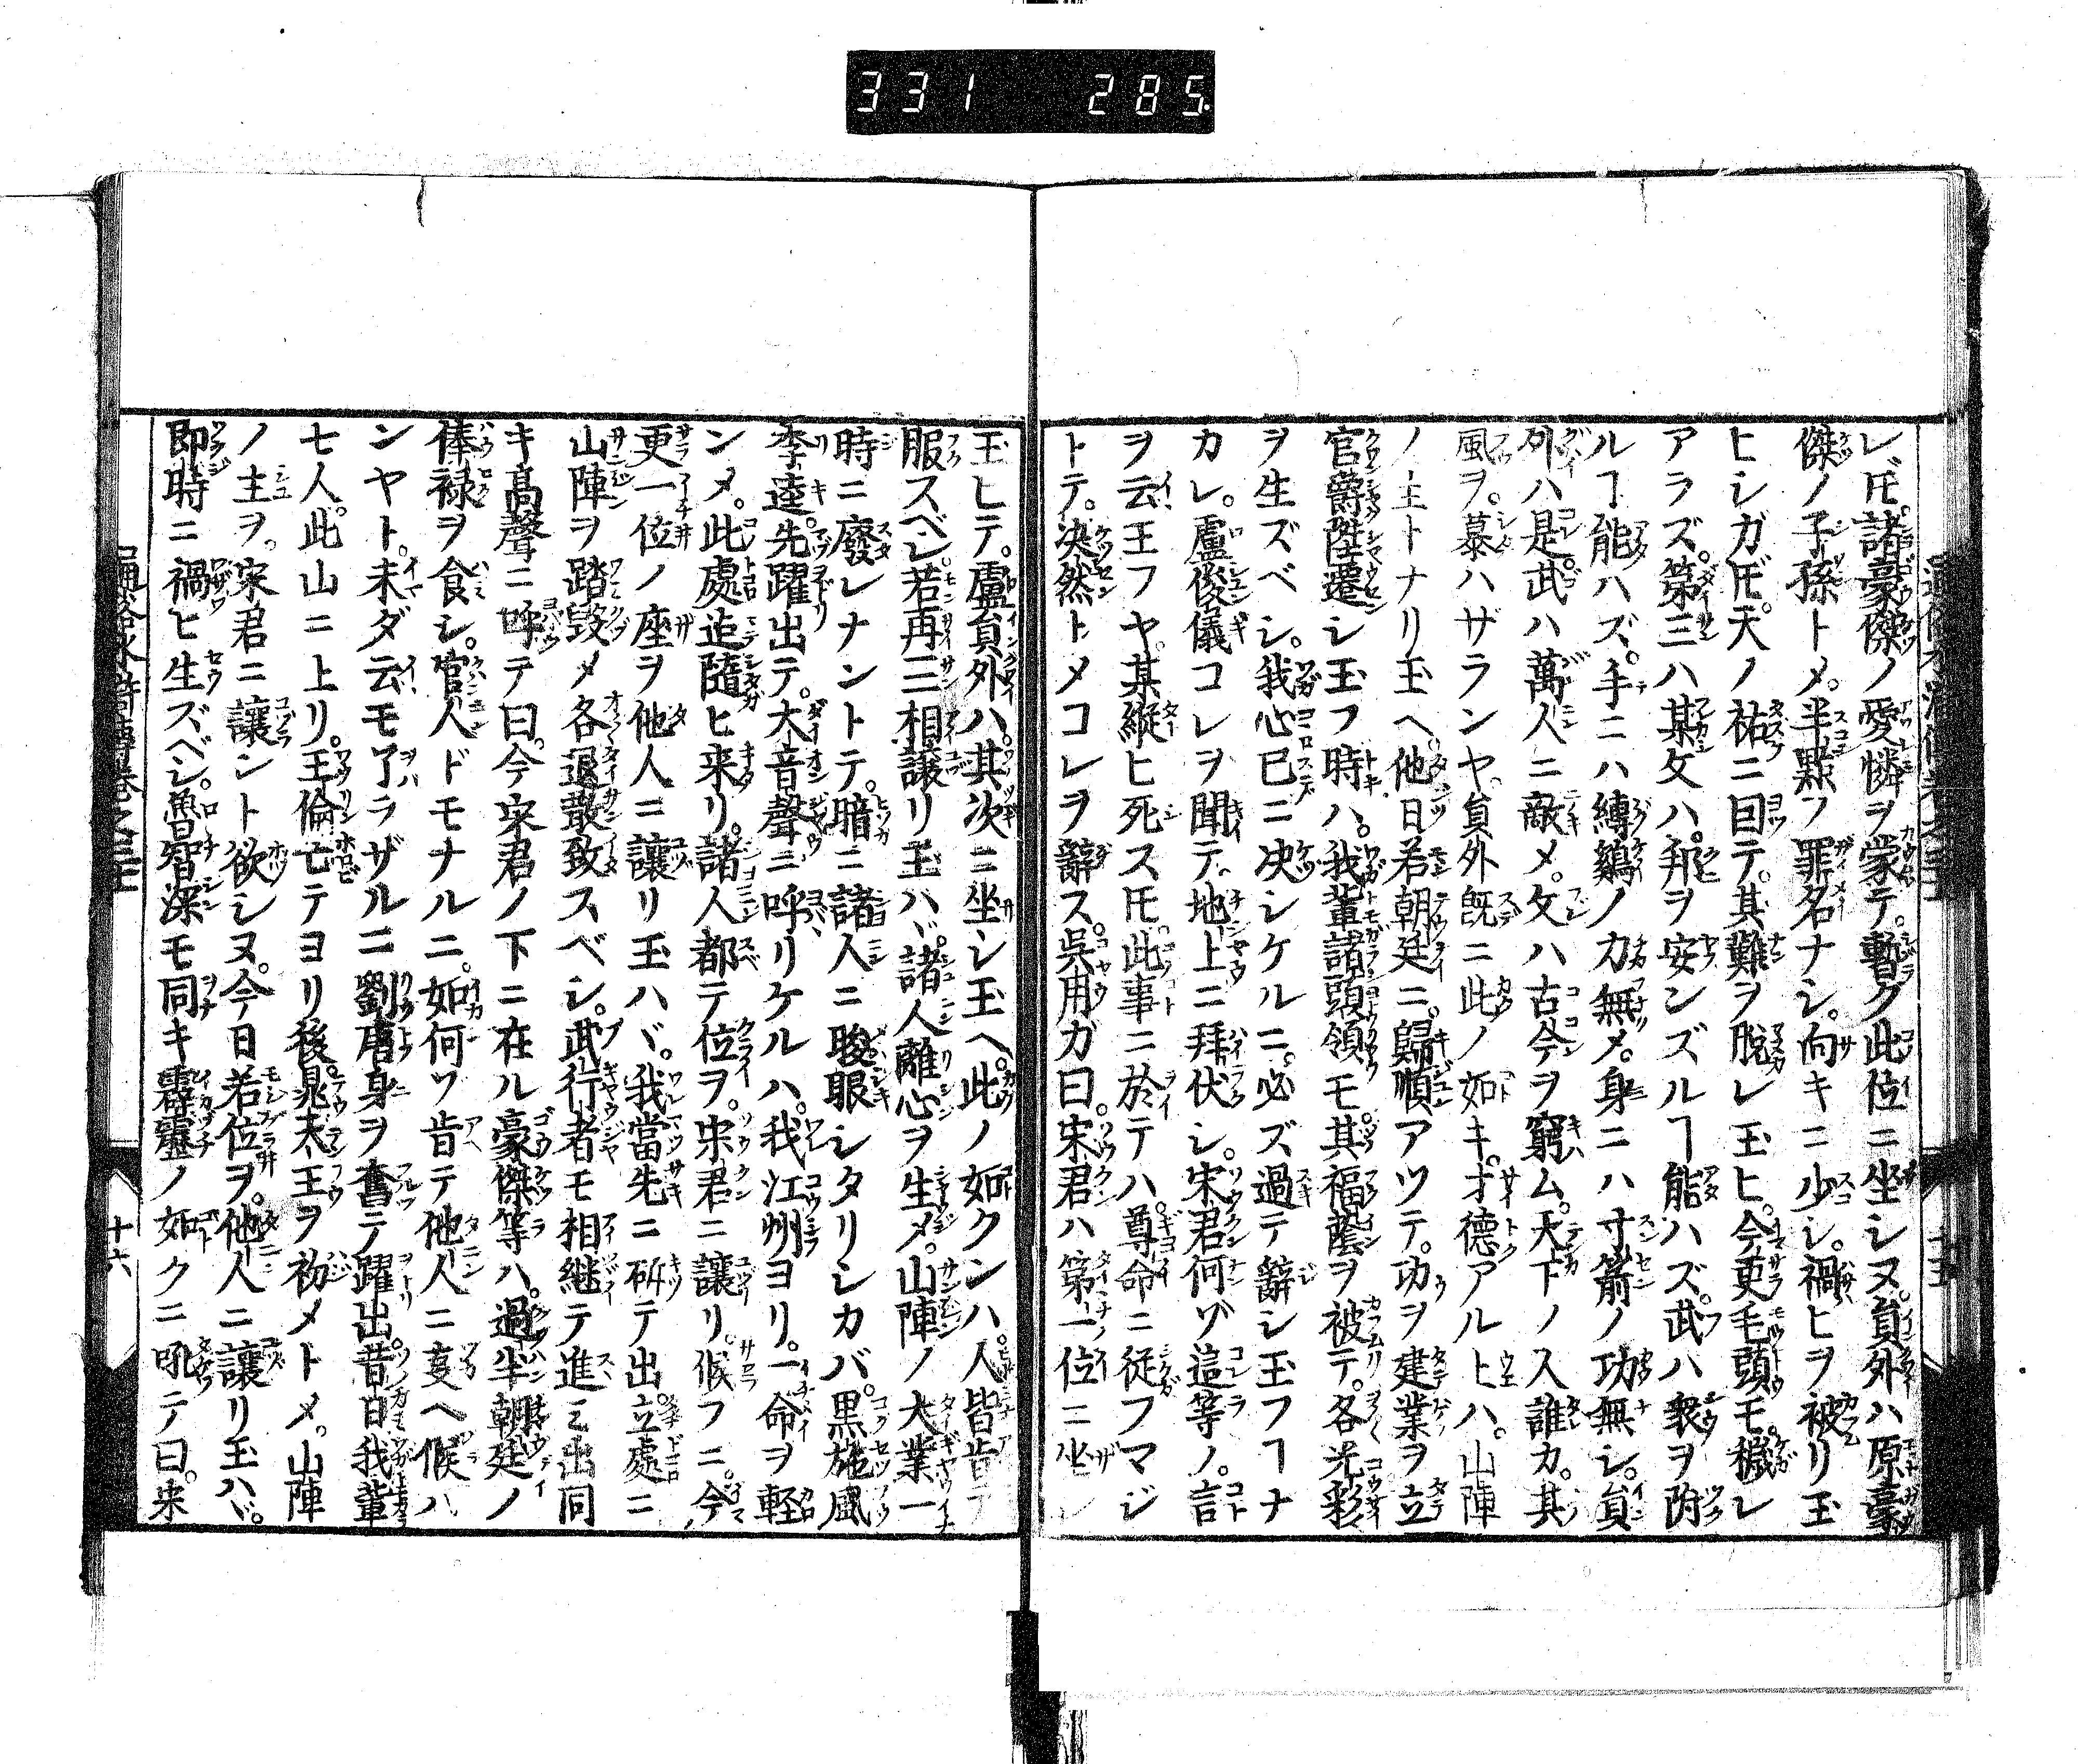 331 285.
レ𪜈。諸豪傑ノ愛憐ヲ蒙テ。暫ク此位ニ坐シヌ。員外ハ原豪
傑ノ子孫トメ。半點ノ罪名ナシ。向キニ少シ。禍ヒヲ被リ玉
ヒシガ𪜈。天ノ祐ニ因テ。其難ヲ脱レ玉ヒ。今更毛頭モ。穢レ
アラズ。第三ハ某文ハ。邦ヲ安ンズルヿ能ハズ。武ハ衆ヲ附
ルヿ能ハズ。手ニハ縛鷄ノ力無メ。身ニハ寸箭ノ功無シ。員
外ハ是武ハ萬人ニ敵メ。文ハ古今ヲ窮ム。天下ノ人誰カ。其
風ヲ。慕ハザランヤ。員外既ニ此ノ如キ。才德アル上ハ。山陣
ノ主トナリ玉ヘ。他日若朝廷ニ。歸順アツテ。功ヲ建業ヲ立
官爵陞遷シ玉フ時ハ。我輩諸頭領モ。其福蔭ヲ被テ。各光彩
ヲ生ズベシ。我心已ニ决シケルニ。必ズ過テ辭シ玉フヿナ
カレ。盧俊儀コレヲ聞テ。地上ニ拜伏シ。宋君何ゾ這等ノ。言
ヲ云玉フヤ。某縱ヒ死ス𪜈。此事ニ於テハ。尊命ニ從フマジ
トテ。决然トメコレヲ辭ス。呉用ガ曰。宋君ハ第一位ニ坐シ
玉ヒテ。盧員外ハ。其次ニ坐シ玉ヘ。此ノ如クンハ。人皆肯テ
服スベシ。若再三相讓リ玉ハヾ。諸人離心ヲ生メ。山陣ノ大業一
時ニ廢レナントテ。暗ニ諸人ニ睃眼シタリシカバ。黒旋風
李逵。先躍出テ。大音聲ニ呼リケルハ。我江州ヨリ。一命ヲ輕
ンメ。此處迠隨ヒ来リ。諸人都テ位ヲ。宋君ニ讓リ。候フニ。今
更一位ノ座ヲ他人ニ讓リ玉ハヾ。我當先ニ斫テ出。立處ニ
山陣ヲ踏毀メ各退散致スベシ。武行者モ相継テ進ミ出同
キ高聲ニ呼テ曰。今宋君ノ下ニ在ル豪傑等ハ。過半朝廷ノ
俸禄ヲ食シ。官人ドモナルニ。如何ソ肯テ他人ニ事ヘ候ハ
ンヤト。未ダ云モ了ラザルニ劉唐身ヲ奮テ躍出。昔日我輩
七人。此山ニ上リ。王倫亡テヨリ後。晁天王ヲ初メトメ。山陣
ノ主ヲ。宋君ニ讓ント欲シヌ。今日若位ヲ。他人ニ讓リ玉ハヾ。
即時ニ禍ヒ生ズベシ。魯智深モ同キ霹靂ノ如クニ吼テ曰。宋
十六